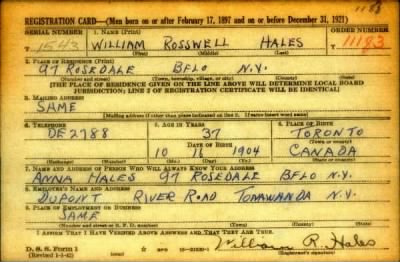 1183
REGISTRATION CARD—(Men born on or after February 17, 1897 and on or before December 31, 1921)
SERIAL NUMBER 1. NAME (Print) ORDER NUMBER
T 1543 WILLIAM ROSSWELL HALES 11183
(First) (Middle) (Last)
2. PLACE OF RESIDENCE (Print)
97 ROSEDALE BFLO N.Y.
(Number and street) (Town, township, village, or city) (County) (State)
[THE PLACE OF RESIDENCE GIVEN ON THE LINE ABOVE WILL DETERMINE LOCAL BOARD
JURISDICTION; LINE 2 OF REGISTRATION CERTIFICATE WILL BE IDENTICAL]
3. MAILING ADDRESS
SAME
[Mailing address if other than place indicated on line 2. If same insert word same]
4. TELEPHONE 5. AGE IN YEARS 6. PLACE OF BIRTH
DE 2788 37 TORONTO
DATE OF BIRTH (Town or county)
10 16 1904 CANADA
(Exchange) (Number) (Mo.) (Day) (Yr.) (State or country)
7. NAME AND ADDRESS OF PERSON WHO WILL ALWAYS KNOW YOUR ADDRESS
ANNA HALES 97 ROSEDALE BFLO N.Y.
8. EMPLOYER'S NAME AND ADDRESS
DUPONT RIVER ROAD TONAWANDA N.Y.
9. PLACE OF EMPLOYMENT OR BUSINESS
SAME
(Number and street or R. F. D. number) (Town) (County) (State)
I AFFIRM THAT I HAVE VERIFIED ABOVE ANSWERS AND THAT THEY ARE TRUE.
D. S. S. Form 1
(Revised 1-1-42) William R. Hales
(Registrant's signature)